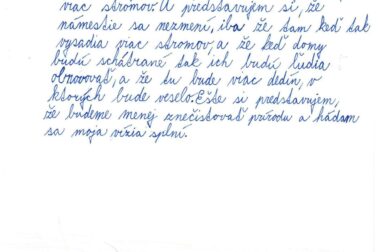 viac stromov. A predstavujem si, že
námestie sa nezmení, iba že tam keď tak
vysadia viac stromov, a že keď domy
budú schátrané tak ich budú ľudia
obnovovať, a že tu bude viac dedín, v
ktorých bude veselo. Ešte si predstavujem,
že budeme menej znečisťovať prírodu a hádam
sa moja vízia splní.